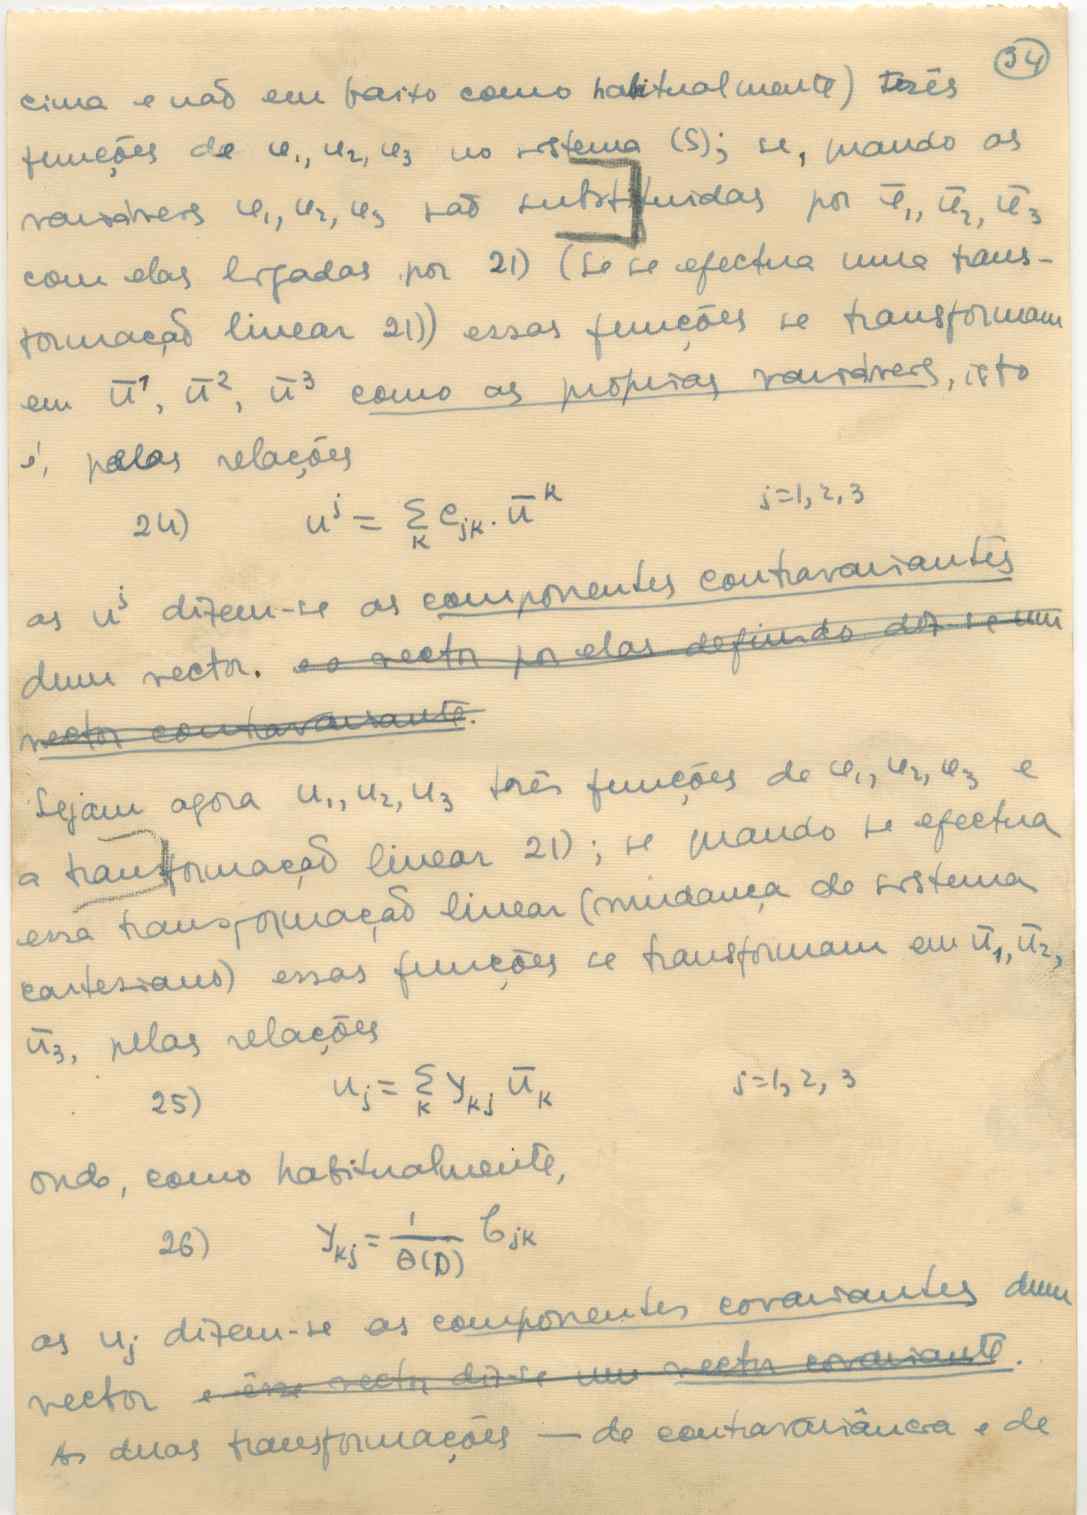 34
cima e não em baixo como habitualmente) três
funções de φ₁, φ₂, φ₃ no sistema (S); se, quando as
variáveis φ₁, φ₂, φ₃ são substituidas por φ̅₁, φ̅₂, φ̅₃
com elas ligadas por 21) (se se efectua uma trans-
formação linear 21)) essas funções se transformam
em u̅¹, u̅², u̅³ como as próprias variáveis, isto
é, pelas relações
24) uʲ = Σ_k c_jk . u̅ᵏ j=1, 2, 3
as uʲ dizem-se as componentes contravariantes
dum vector. e o vector por elas definido diz-se um
vector contravariante.
Sejam agora u₁, u₂, u₃ três funções de φ₁, φ₂, φ₃ e
a transformação linear 21); se quando se efectua
essa transformação linear (mudança de sistema
cartesiano) essas funções se transformam em u̅₁, u̅₂,
u̅₃, pelas relações
25) u_j = Σ_k γ_kj u̅_k j=1, 2, 3
onde, como habitualmente,
26) γ_kj = 1/θ(D) C_jk
as u_j dizem-se as componentes covariantes dum
vector e êsse vector diz-se um vector covariante.
As duas transformações — de contravariância e de